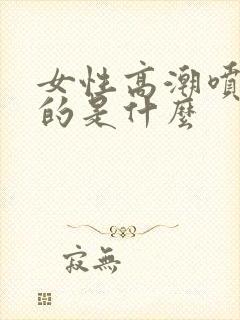 女性高潮噴
的是什麼
寂無